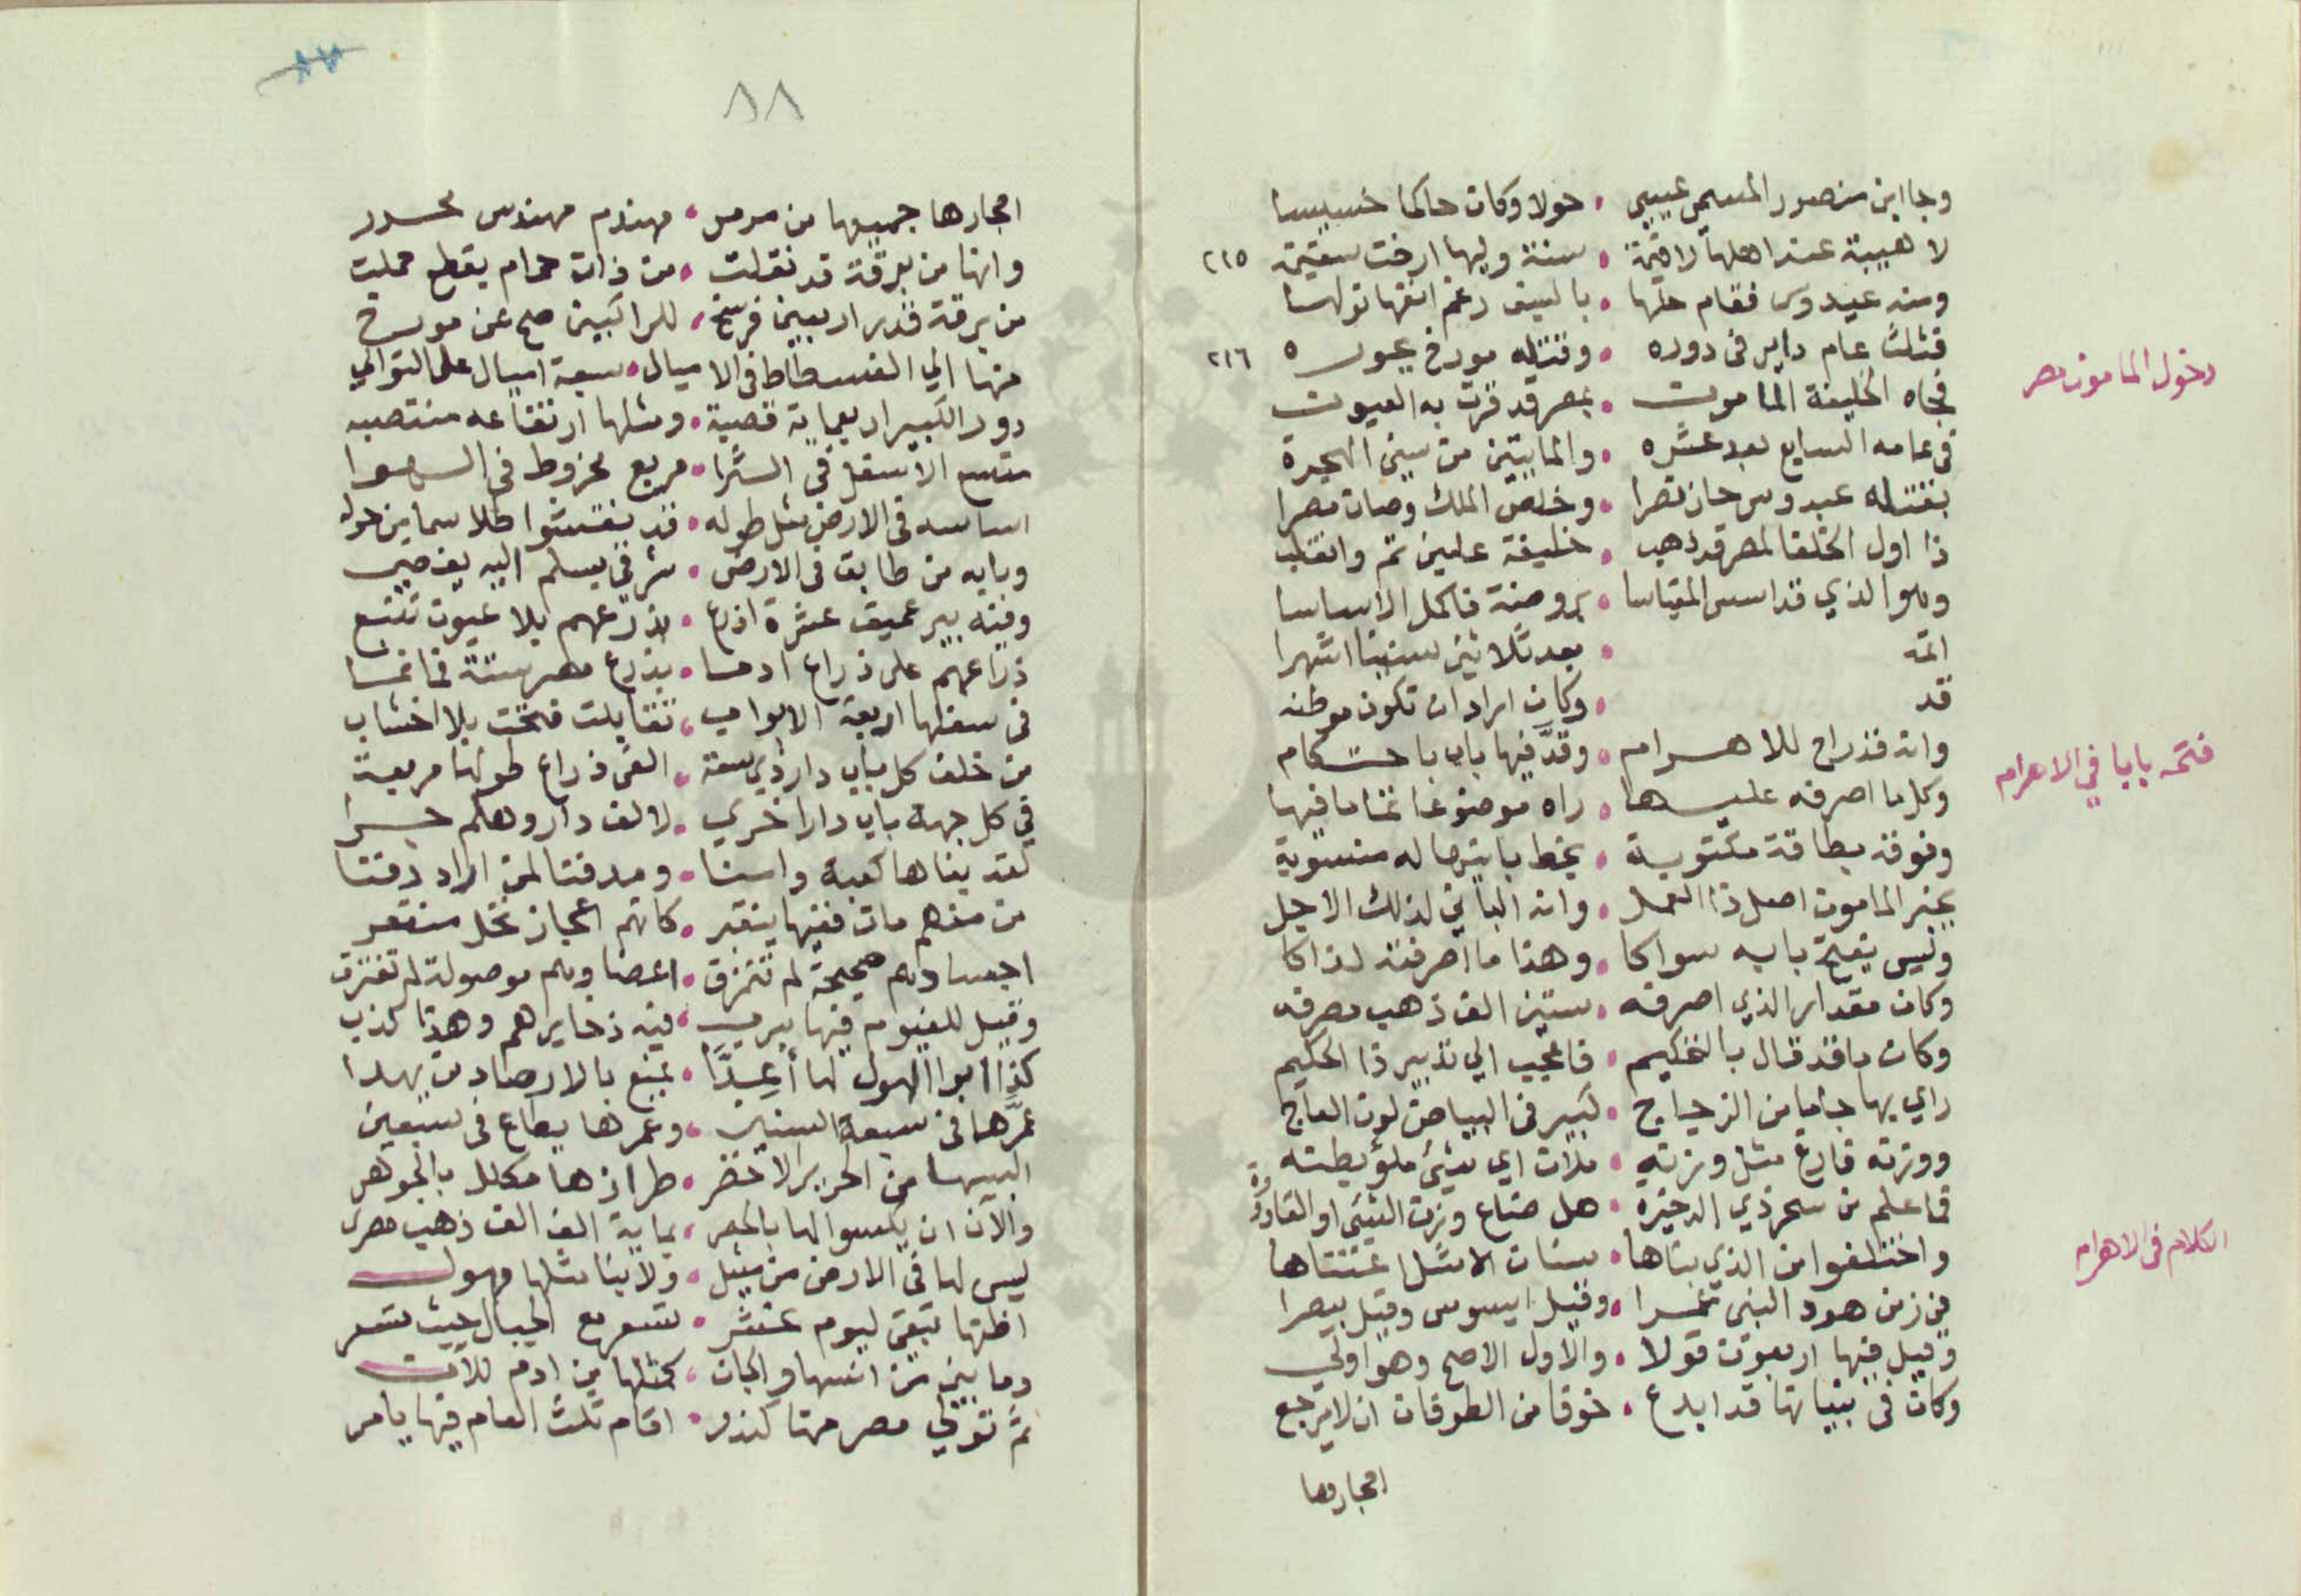 وجا ابن منصور المسمى عيسى • حولا وكان حاكما خسيسا
لا هيبة عند اهلها لاقية • سنة وليها ارخت سقيمة ٢١٥
ومنه عبدوس فقام حلها • بالسيف رغم انفها تولها
فثلث عام داير فى دوره • وقتله مورخ بجوره ٢١٦
دخول المامون مصر
فجاه الخليفة المامون • بمصر قد قرت به العيون
فى عامه السابع بعد عشره • والمايتين من سنين الهجرة
بقتله عبدوس حاز نصرا • وخلص الملك وصان مصرا
ذا اول الخلفا لمصر قد ذهب • خليفة علين تم وانقلب
وهو الذي قد اسس المقياسا • بروضة فاكمل الاساسا
اتمه • بعد ثلاثين سنينا اشهرا
قد • وكان اراد ان تكون موطنه
فتحه بابا في الاهرام
وانه قد راح للاهرام • وقد فيها باب باحتكام
وكلما اصرفه عليها • راه موضوعا تماما فيها
وفوقه بطاقة مكتوبة • بخط بانيها له منسوبة
بخبر المامون اصل ذا العمل • وانه الباني لذلك الاجل
وليس يفتح بابه سواكا • وهذا ما اصرفته لذاكا
وكان مقدار الذي اصرفه • ستين الف ذهب مصرفه
وكان ما قد قال بالتحكيم • فاعجب الي تدبير ذا الحكيم
راي بها جاما من الزجاج • كبير فى البياض لون العاج
ووزنه فارغ مثل وزنه • ملات اي شيئ ملؤ بطنه
فما علم من سحر ذي الدخيرة • هل ضاع وزن الشيئ او القارورة
الكلام فى الاهرام
واختلفوا من الذي بناها • بينات الامثل اعتناها
في زمن هود النبى عمرا • وقيل ايسوس وقيل بيصرا
وقيل فيها اربعون قولا • والاول الاصح وهو اولي
وكان فى بنيانها قد ابدع • خوفا من الطوفان ان لا يرجع
احجارها
٨٨
احجارها جميعها من مرمر • مهندم مهندس محرر
وانها من برقة قد نقلت • من ذات حمام بقطع حملت
من برقة قدر اربعين فرسخ • للراكبين صح عن مورخ
منها الي الفسطاط فى الاميال • سبعة اميال على التوالي
دور الكبير اربعماية قصبة • ومثلها ارتفاعه منتصبه
متسع الاسفل فى الثرا • مربع مخروط فى الهوا
اساسه فى الارض مثل طوله • قد نقشوا طلاسما من حوله
وبابه من طابق فى الارض • شرقي بسلم اليه يفضي
وفيه بير عميق عشرة اذرع • بذرعهم بلا عيون تنبع
ذراعهم على ذراع ادمسا • بذرع مصر ستة فاخمسا
فى سفلها اربعة الابواب • تقابلت فتحت بلا اخشاب
من خلف كل باب دار ذي سعة • الفى ذراع طولها مربعة
في كل جهة باب دار اخري • لالف دار وهلم جرا
لقد بناها كعبة واسنا • ومدفنا لمن اراد دفنا
من منهم مات ففيها ينقبر • كانهم اعجاز نخل منقعر
اجسادهم صحيحة لم تتمزق • اعضاوهم موصولة لم تفترق
وقيل للفيوم فيها سرب • فيه ذخايرهم وهذا كذب
كذا ابو الهول لها أعدا • يمنع بالارصاد من يهدا
عمرها فى سبعة السنين • وعمرها بطاع فى سبعين
البيها من الحرير الاخضر • طرازها مكلل بالجوهر
والان ان يكسوا لها بالحصر • بماية الف الف ذهب مصري
ليس لها فى الارض من مثيل • ولا بنا مثلها مهول
اظنها تبقى ليوم عشر • تسير مع الجبال حيث تسير
وما بنين من انسها والجان • كمثلها من ادم للان
ثم تولي مصر منها كندر • اقام ثلث العام فيها يامر